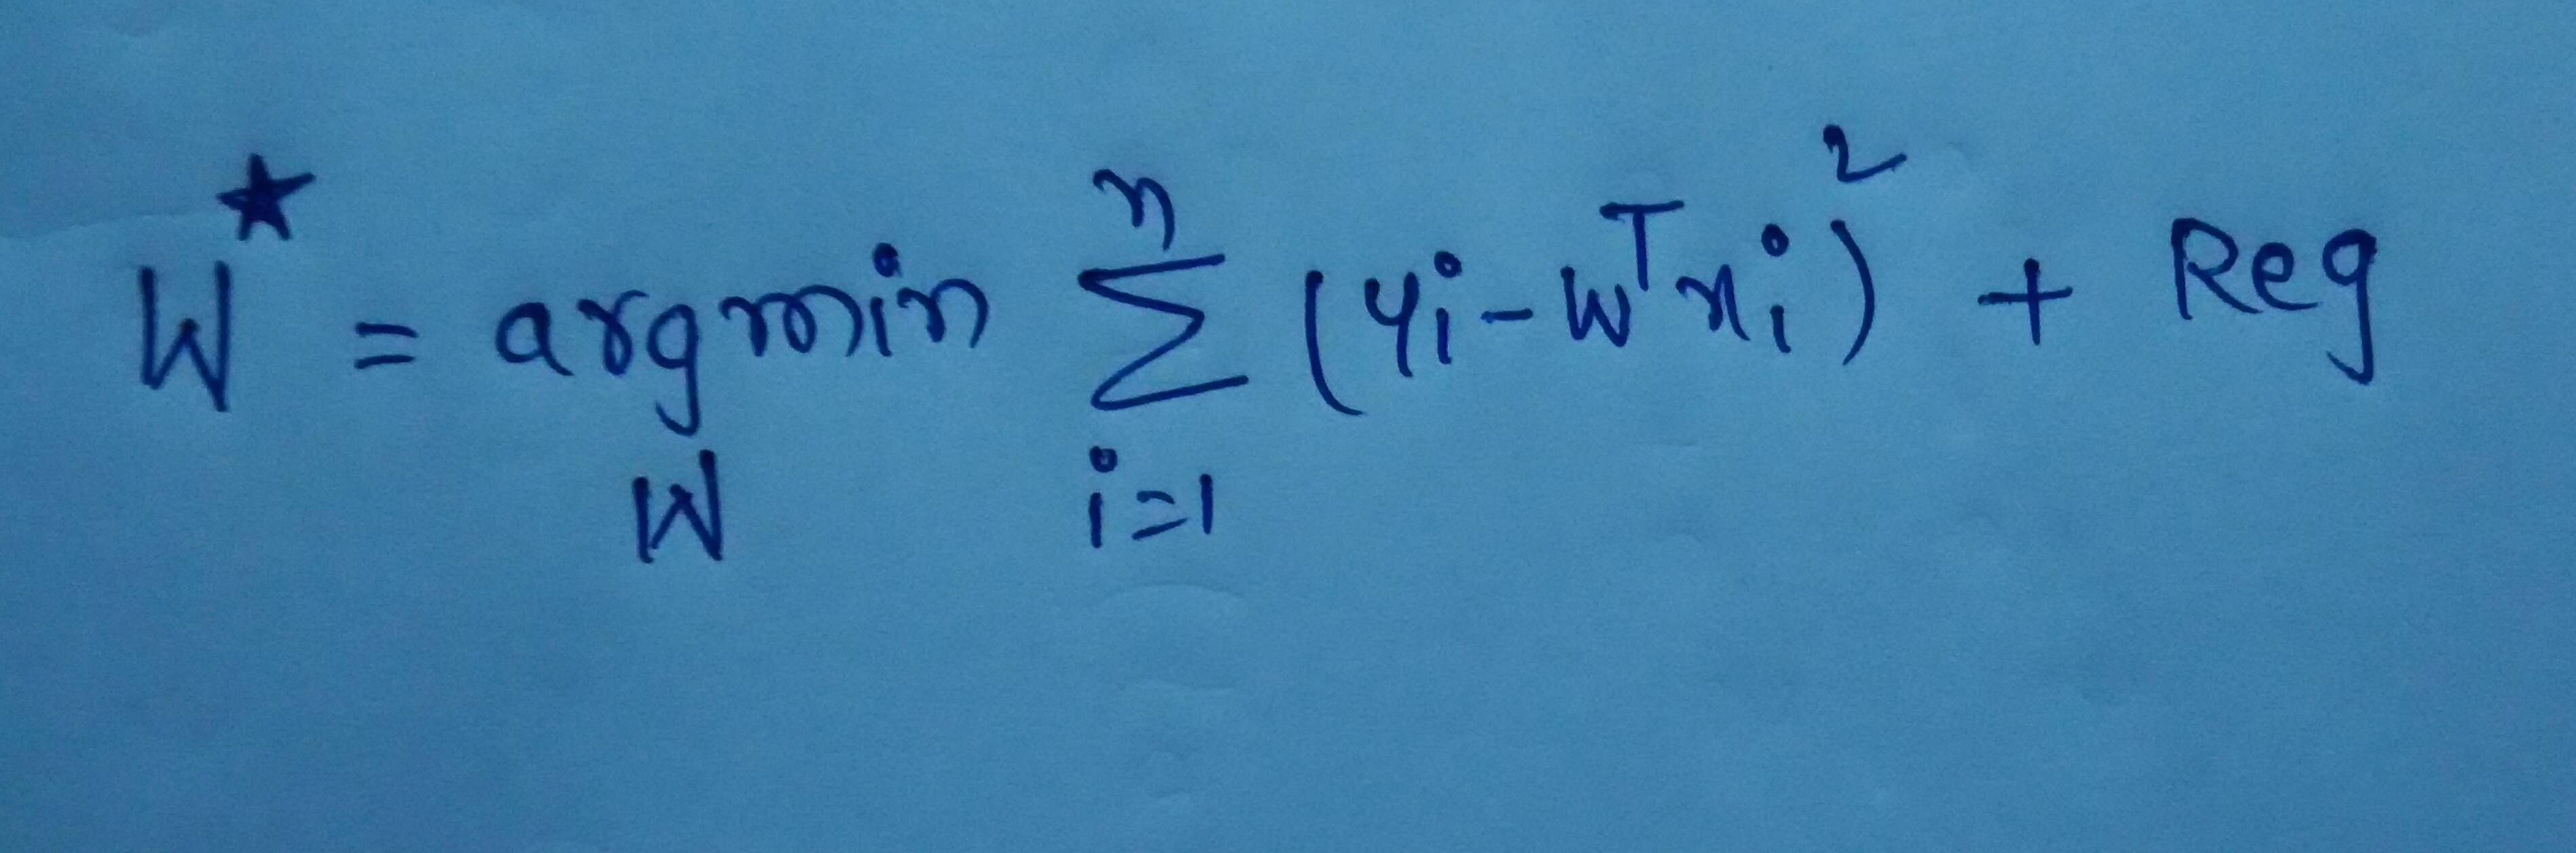 W* = argmin_W ∑_{i=1}^{n} (y_i - w^T x_i)^2 + Reg